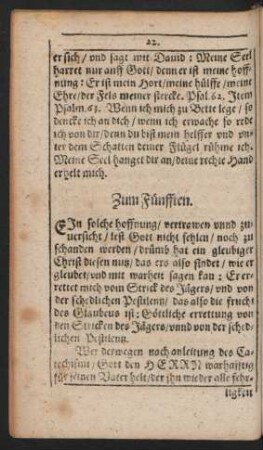 22.
er sich / und sagt mit Dauid: Meine Seel
harret nur auff Gott / denn er ist meine hoff-
nung: Er ist mein Hort / meine hülffe / meine
Ehre / der Fels meiner stercke. Psal. 62. Item
Psalm. 63. Wenn ich mich zu Bette lege / so
dencke ich an dich / wenn ich erwache so rede
ich von dir / denn du bist mein helffer und vn-
ter dem Schatten deiner Flügel rühme ich.
Meine Seel hanget dir an / deine rechte Hand
erhelt mich.
Zum Fünfften.
EIn solche hoffnung / vertrawen vnnd zu-
uersicht / lest Gott nicht fehlen / noch zu
schanden werden / drümb hat ein gleubiger
Christ diesen nutz / das ers also findet / wie er
gleubet / und mit warheit sagen kan: Er er-
rettet mich vom Strick des Jägers / und von
der schedlichen Pestilentz / das also die frucht
des Glaubens ist: Göttliche errettung von
den Stricken des Jägers / vnnd von der sched-
lichen Pestilentz.
Wer derwegen nach anleitung des Ca-
techismi / Gott den HERRN warhafftig
für seinen Vater helt / der ihn wieder alle fehr-
ligkeit